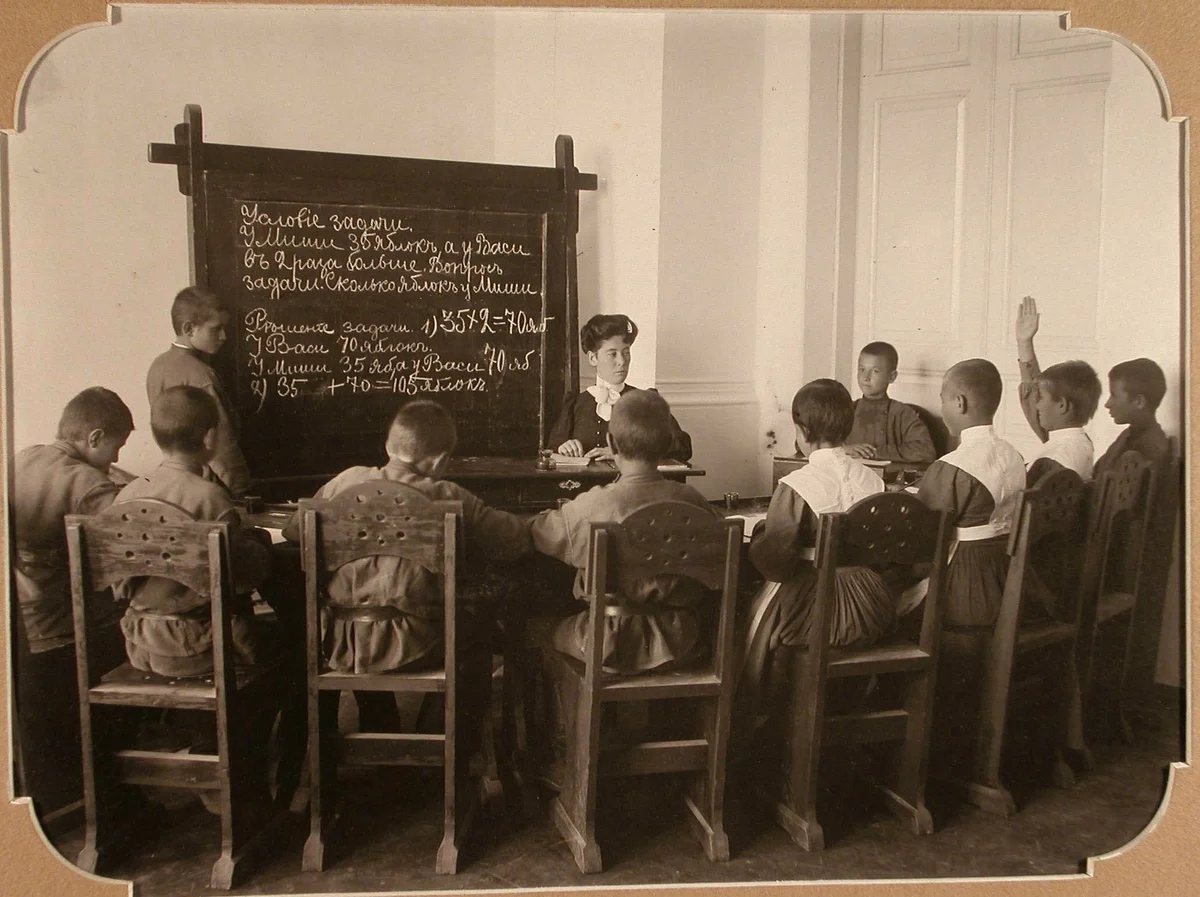 Условіе задачи.
У Миши 35 яблокъ, а у Васи
въ 2 раза больше. Вопросъ
задачи. Сколько яблокъ у Миши.
Рѣшеніе задачи. 1) 35×2=70 ябл
У Васи 70 яблокъ.
У Миши 35 ябл а у Васи 70 яб
2) 35 +70=105 яблокъ.